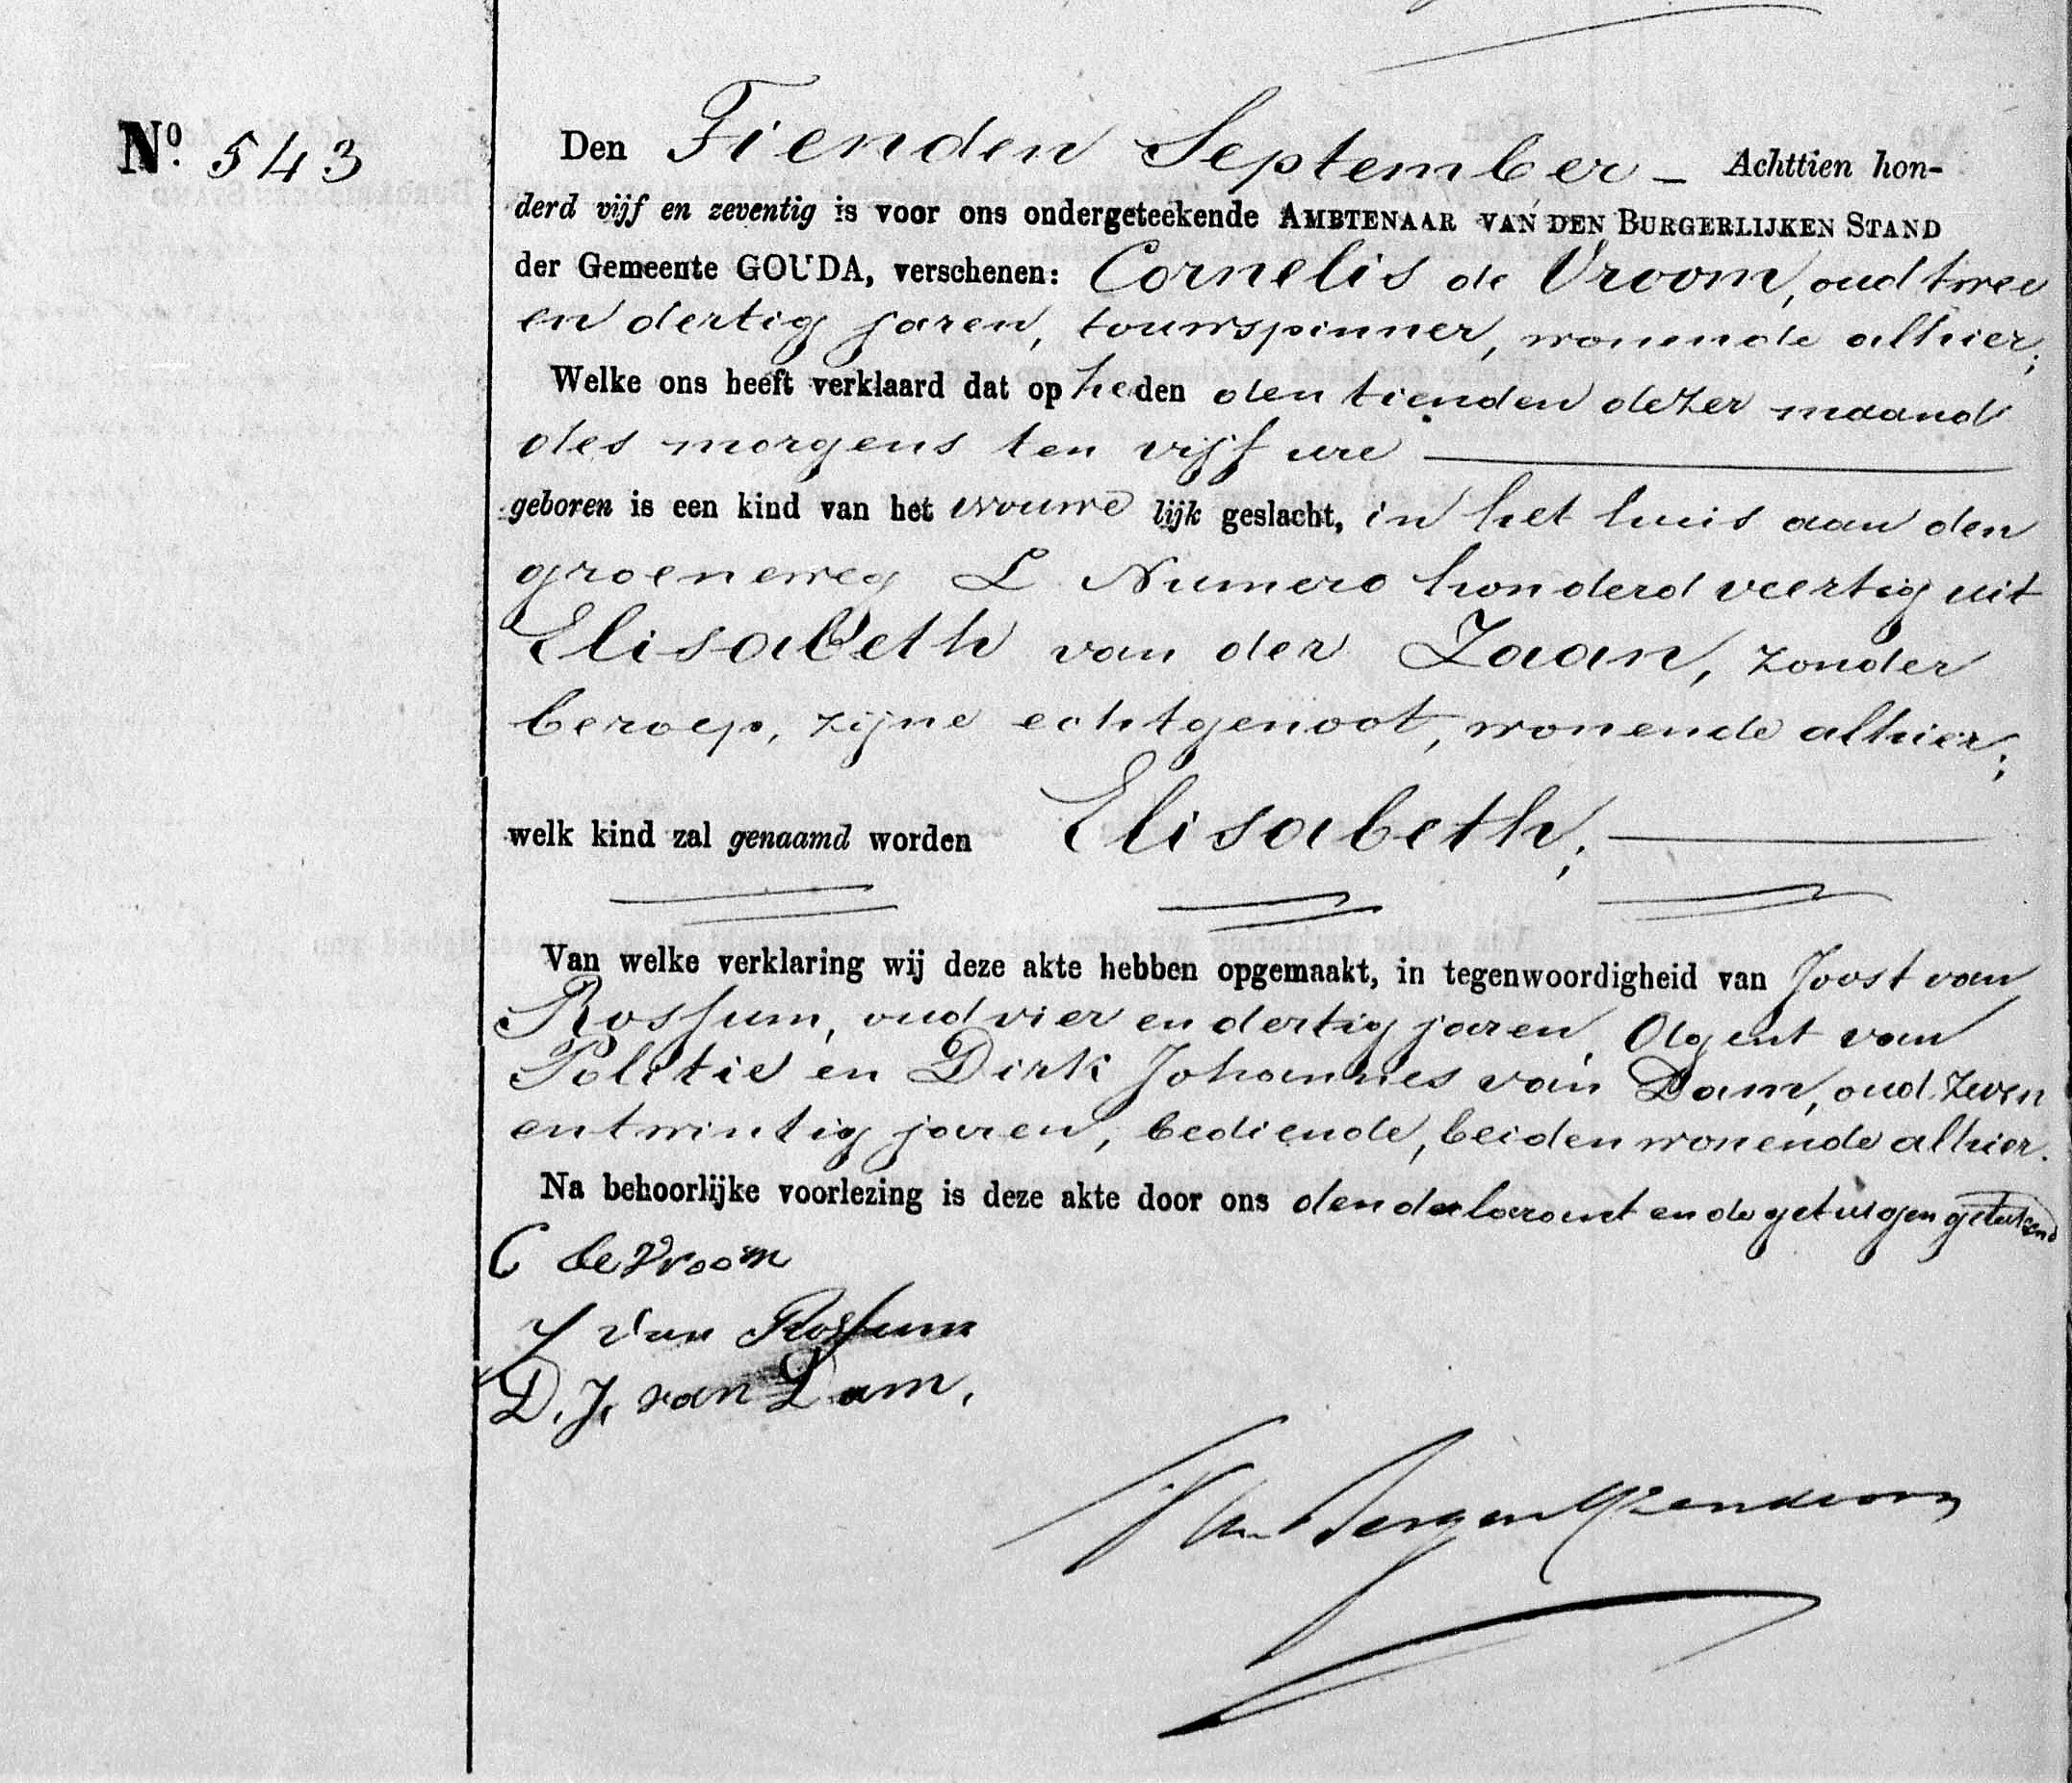 Nº. 543
Den Tienden September - Achttien hon-
derd vijf en zeventig is voor ons ondergeteekende AMBTENAAR VAN DEN BURGERLIJKEN STAND
der Gemeente GOUDA, verschenen: Cornelis de Vroom, oud twee
en dertig jaren, touwspinner, wonende alhier;
Welke ons heeft verklaard dat op heden den tienden dezer maand
des morgens ten vijf ure
geboren is een kind van het vrouwelijk geslacht, in het huis aan den
groeneweg L Numero honderd veertig uit
Elisabeth van der Zaan, zonder
beroep, zijne echtgenoot, wonende alhier;
welk kind zal genaamd worden Elisabeth;
Van welke verklaring wij deze akte hebben opgemaakt, in tegenwoordigheid van Joost van
Rossum, oud vier en dertig jaren, Agent van
Politie en Dirk Johannes van Dam, oud zeven
en twintig jaren, bediende, beiden wonende alhier.
Na behoorlijke voorlezing is deze akte door ons den declarant en de getuigen geteekend
C de Vroom
J van Rossum
D. J. van Dam.
van Bergen IJzendoorn